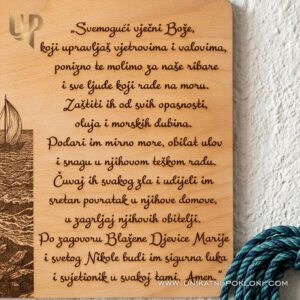 UP
„Svemogući vječni Bože,
koji upravljaš vjetrovima i valovima,
ponizno te molimo za naše ribare
i sve ljude koji rade na moru.
Zaštiti ih od svih opasnosti,
oluja i morskih dubina.
Podari im mirno more, obilat ulov
i snagu u njihovom teškom radu.
Čuvaj ih svakog zla i udijeli im
sretan povratak u njihove domove,
u zagrljaj njihovih obitelji.
Po zagovoru Blažene Djevice Marije
i svetog Nikole budi im sigurna luka
i svjetionik u svakoj tami. Amen."
WWW.UNIKATNIPOKLONI.COM